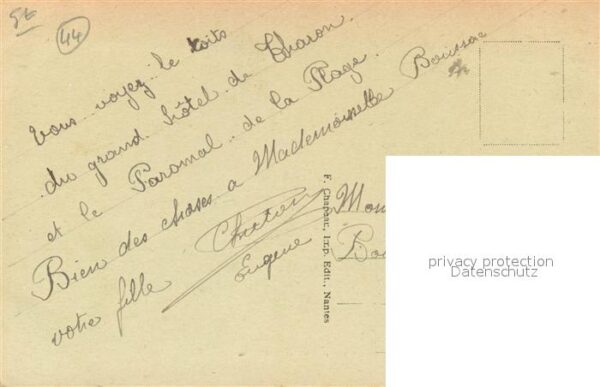 58
44
Vous voyez le toits
du grand hôtel de Tharon
et le Paromal de la Plage
Bien des choses a Mademoiselle Boussac
votre fille
Eugène
F. Chapeau, Imp. Edit., Nantes
Mon
Bou
privacy protection
Datenschutz